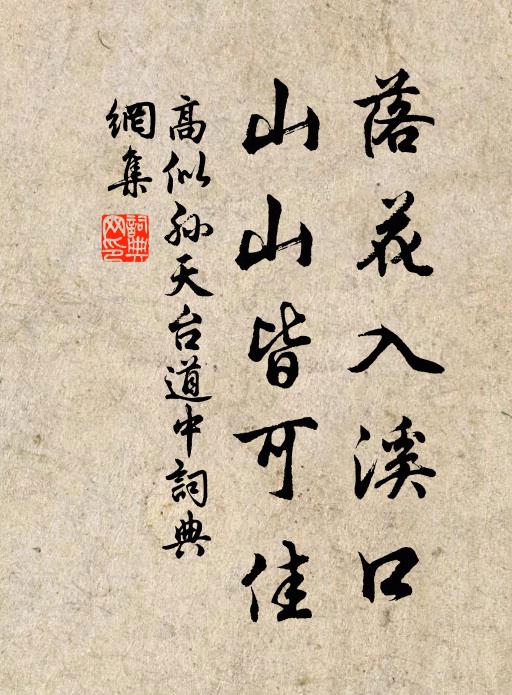 落花入溪口
山山皆可佳
高似孫天台道中詞典
網集
詞典網印